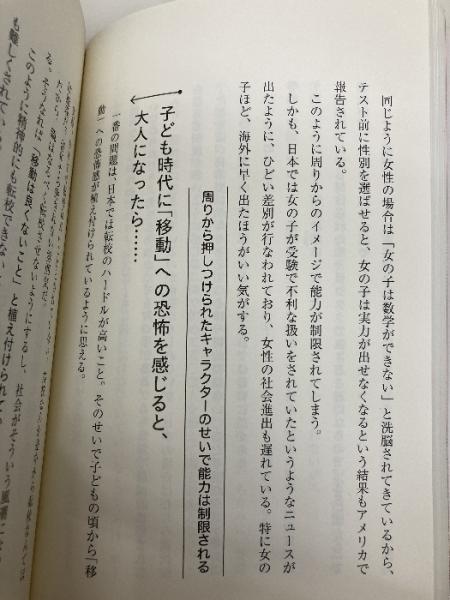 同じように女性の場合は「女の子は数学ができない」と洗脳されてきているから、
テスト前に性別を選ばせると、女の子は実力が出せなくなるという結果もアメリカで
報告されている。
このように周りからのイメージで能力が制限されてしまう。
しかも、日本では女の子が受験で不利な扱いをされていたというようなニュースが
出たように、ひどい差別が行なわれており、女性の社会進出も遅れている。特に女の
子ほど、海外に早く出たほうがいい気がする。
周りから押しつけられたキャラクターのせいで能力は制限される
子ども時代に「移動」への恐怖を感じると、
大人になったら……
一番の問題は、日本では転校のハードルが高いこと。そのせいで子どもの頃から「移
動」への恐怖感が植え付けられているように思える。
る。そうなれば「移動は良くないこと」と植え付けられてい
このように精神的にも転校できない
も難しくされて、